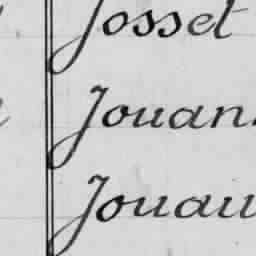 Josset
Jouan
Jouau